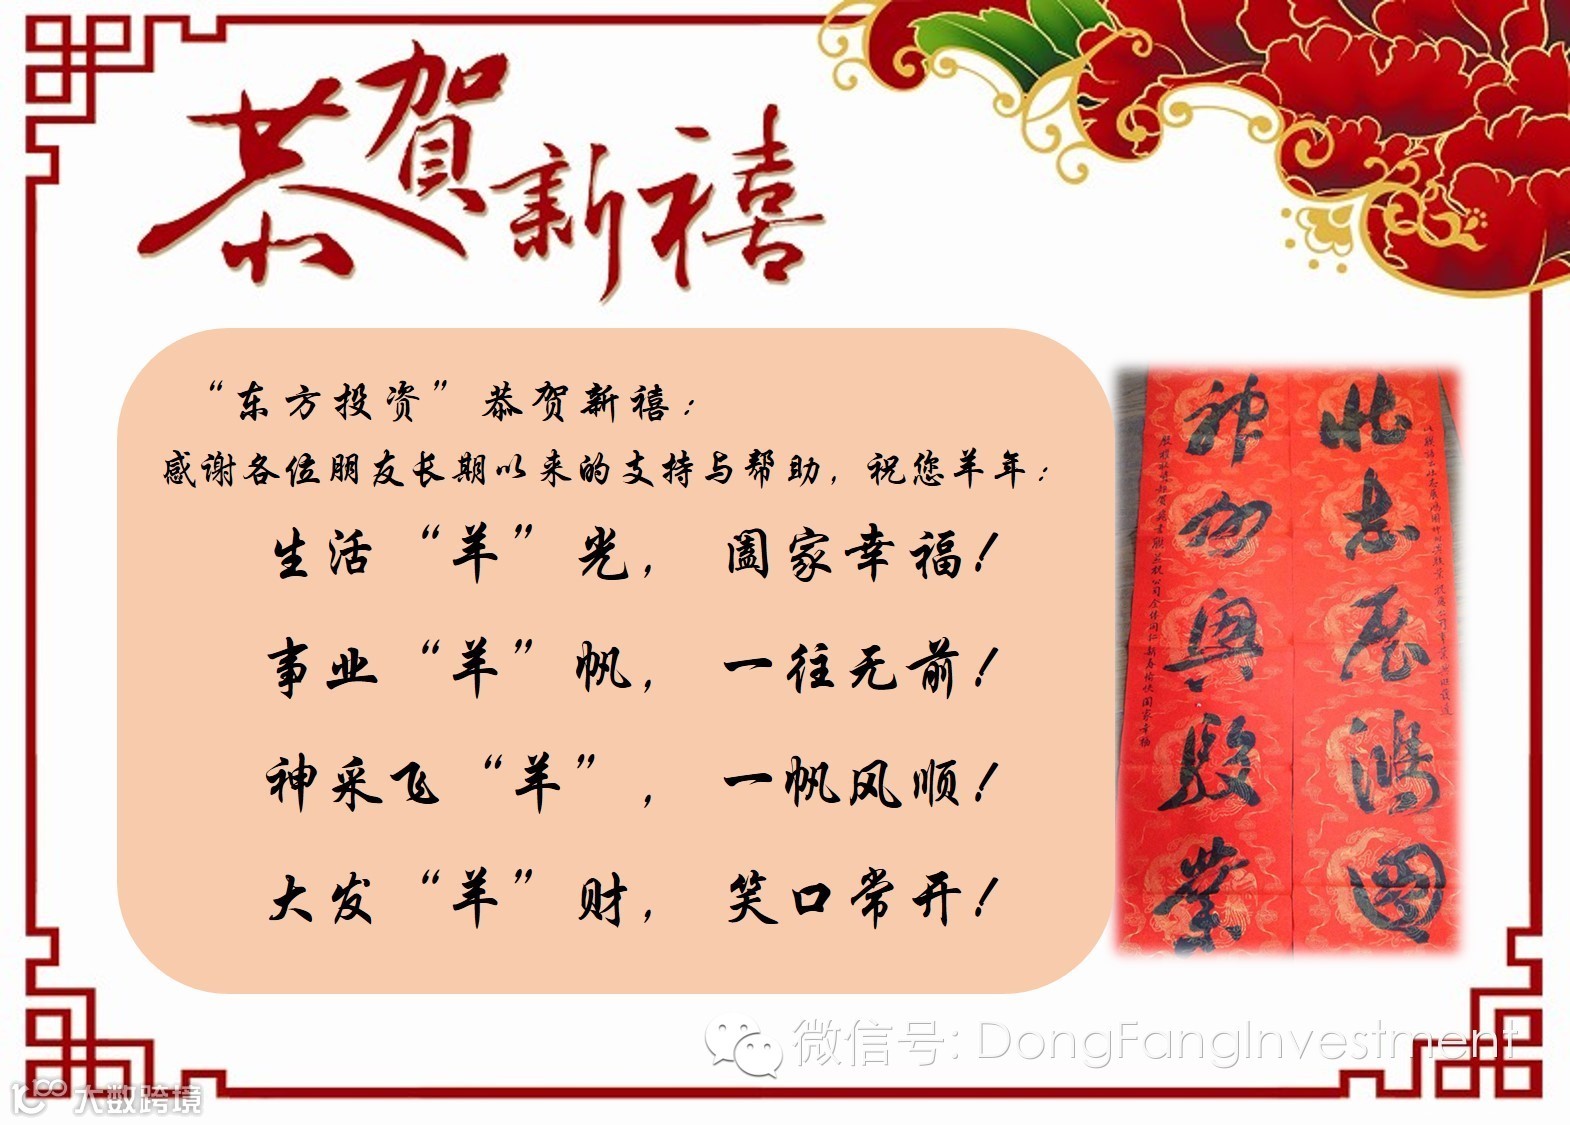 恭賀新禧
“东方投资”恭贺新禧:
感谢各位朋友长期以来的支持与帮助，祝您羊年:
生活“羊”光，阖家幸福!
事业“羊”帆，一往无前!
神采飞“羊”，一帆风顺!
大发“羊”财，笑口常开!
壮志展鸿图
业
微信号: DongFangInvestment
大数跨境